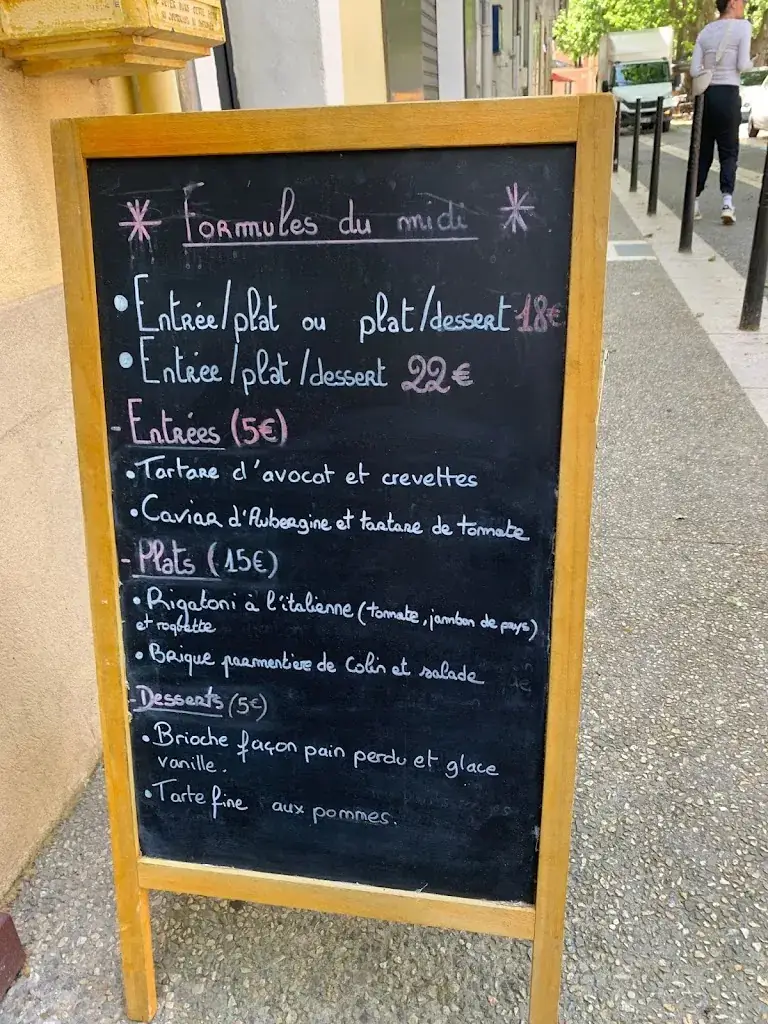 * Formules du midi *
• Entrée/plat ou plat/dessert 18€
• Entrée/plat/dessert 22€
- Entrées (5€)
• Tartare d'avocat et crevettes
• Caviar d'Aubergine et tartare de tomate
- Plats (15€)
• Rigatoni à l'italienne (tomate, jambon de pays)
et roquette
• Brique parmentière de Colin et salade
- Desserts (5€)
• Brioche façon pain perdu et glace
vanille.
• Tarte fine aux pommes.